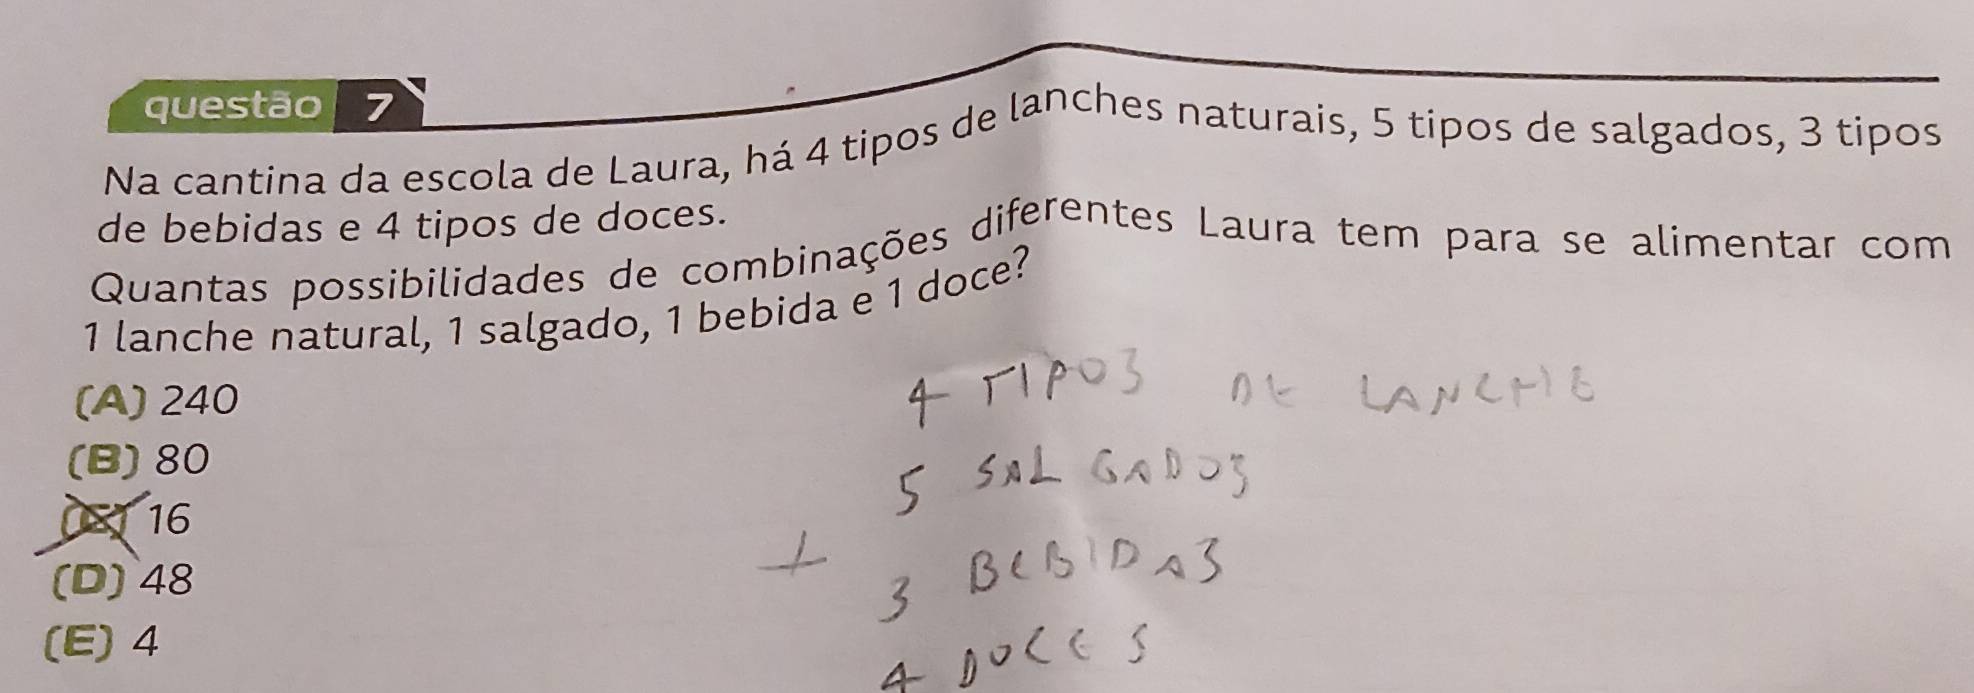 questão 7
Na cantina da escola de Laura, há 4 tipos de lanches naturais, 5 tipos de salgados, 3 tipos
de bebidas e 4 tipos de doces.
Quantas possibilidades de combinações diferentes Laura tem para se alimentar com
1 lanche natural, 1 salgado, 1 bebida e 1 doce?
(A) 240
(B) 80
(C) 16
(D) 48
(E) 4
4 TIPOS DE LANCHE
5 SALGADOS
+ 3 BEBIDAS
4 DOCES